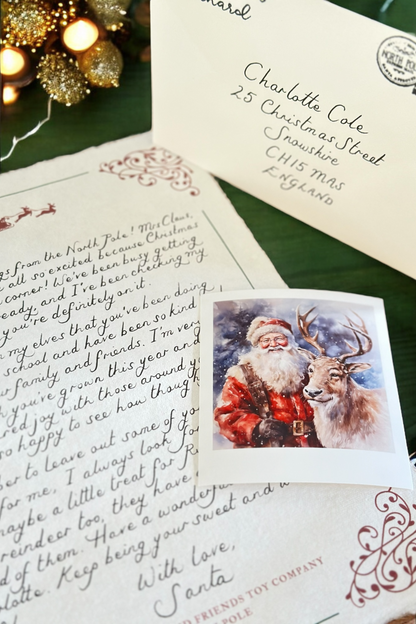 Charlotte Cole
25 Christmas Street
Snowshire
CH15 MAS
ENGLAND
NORTH POLE
from the North Pole! Mrs Claus,
all so excited because Christmas
corner! We've been busy getting
and I've been checking my
you're definitely on it.
my elves that you've been doing
school and have been so kind
family and friends. I'm very
you've grown this year and
joy with those around
happy to see how
to leave out some of
for me. I always look
maybe a little treat for
reindeer too, they have
of them. Have a
Keep being your sweet and
With love,
Santa
FRIENDS TOY COMPANY
POLE